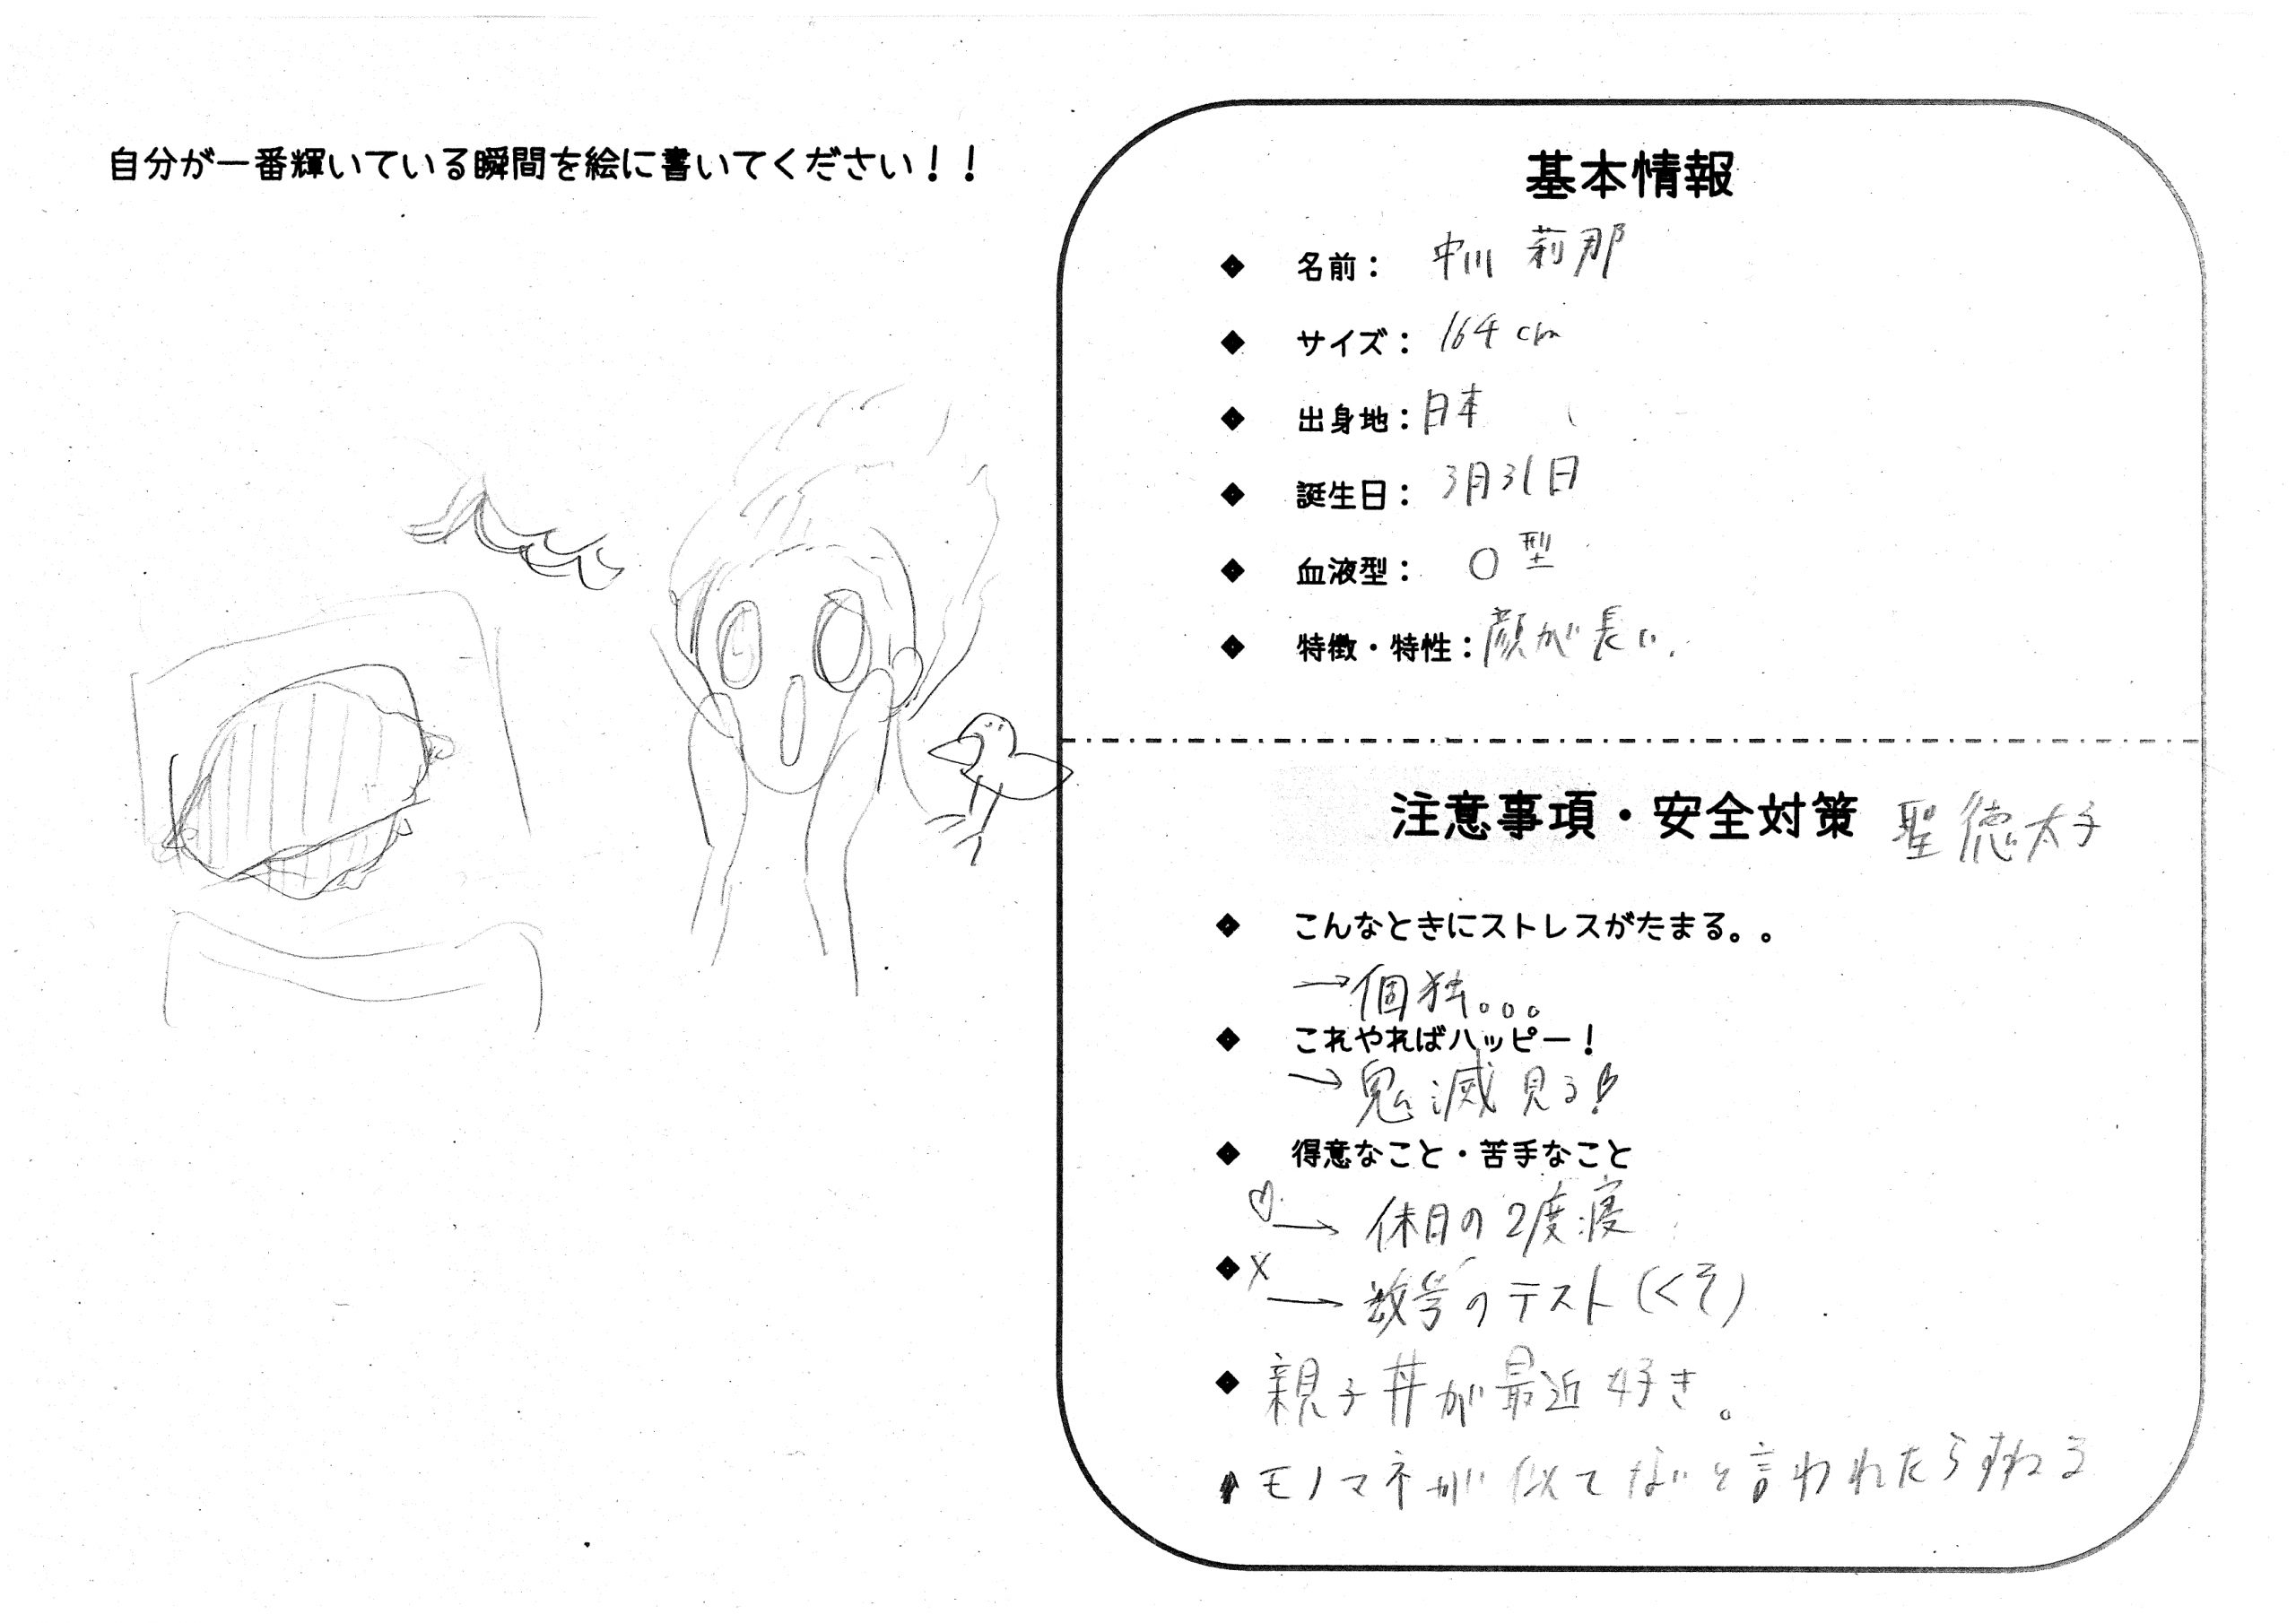 自分が一番輝いている瞬間を絵に書いてください！！
基本情報
◆ 名前： 中川 莉那
◆ サイズ： 164cm
◆ 出身地：日本
◆ 誕生日： 3月31日
◆ 血液型： O型
◆ 特徴・特性：顔が長い.
注意事項・安全対策 聖徳太子
◆ こんなときにストレスがたまる。。
→個独。。。
◆ これやればハッピー！
→鬼滅見る!
◆ 得意なこと・苦手なこと
♡→休日の2度寝
◆ ×→数学のテスト(くそ)
◆ 親子丼が最近好き。
モノマネが似てないと言われたらすねる